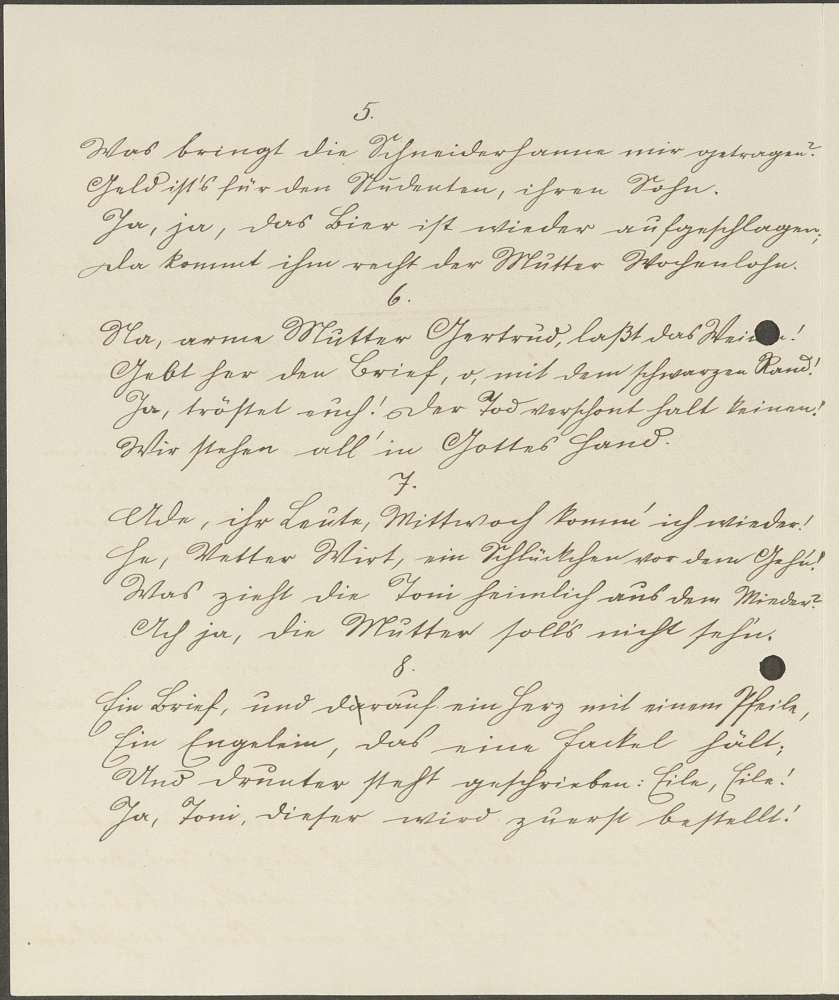 5.
Was bringt die Schneiderhanne mir getragen?
Geld ist's für den Studenten, ihren Sohn.
Ja, ja, das Bier ist wieder aufgeschlagen;
Da kommt ihm recht der Mutter Wochenlohn.
6.
Na, arme Mutter Gertrud, laßt das Weinen!
Gebt her den Brief, o, mit dem schwarzen Rand!
Ja, tröstet euch! Der Tod verschont halt keinen!
Wir stehen all' in Gottes Hand.
7.
Ade, ihr Leute, Mittwoch komm' ich wieder!
He, Vetter Wirt, ein Schlückchen vor dem Gehn!
Was zieht die Toni heimlich aus dem Mieder?
Ach ja, die Mutter soll's nicht seh'n.
8.
Ein Brief, und darauf ein Herz mit einem Pfeile,
Ein Engelein, das eine Fackel hält;
Und drunter steht geschrieben: Eile, Eile!
Ja, Toni, dieser wird zuerst bestellt!